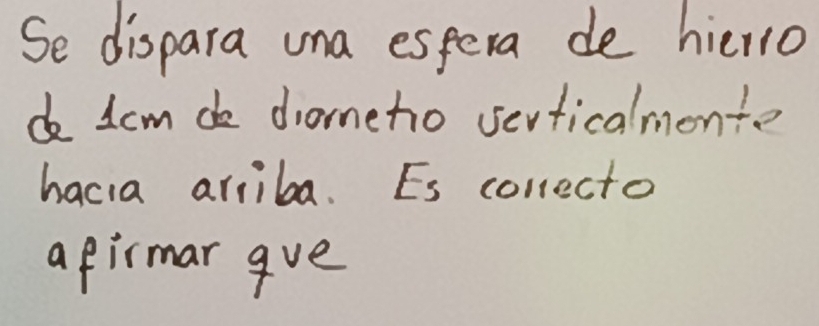 Se dispara una esfera de hierro
de 1cm de diametro verticalmente
hacia arriba. Es correcto
afirmar que